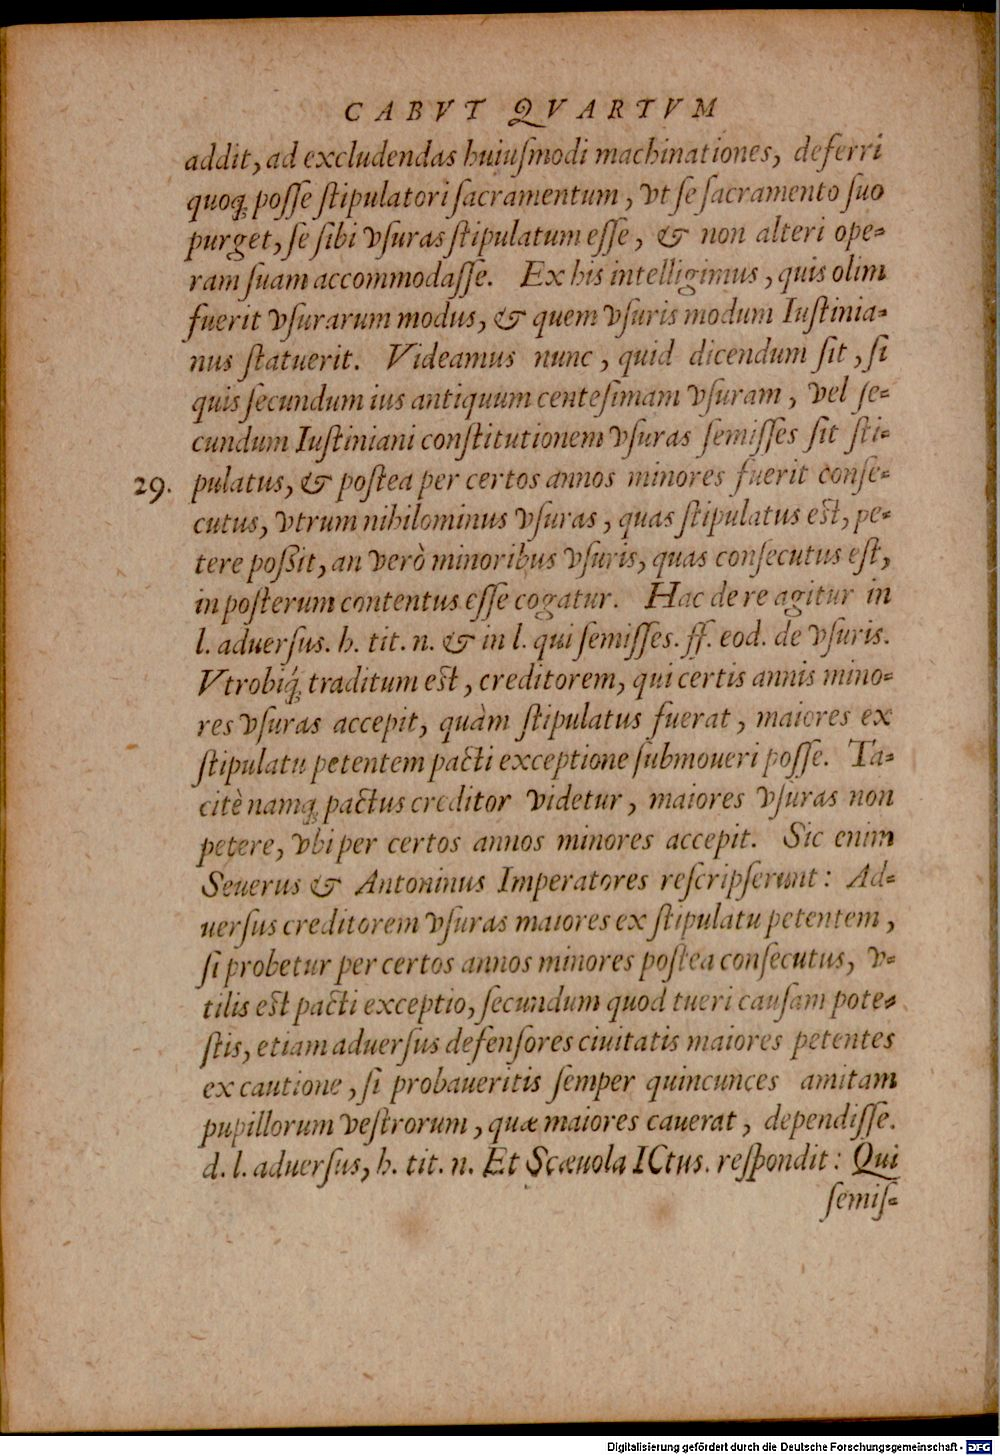 CABVT QVARTVM
addit, ad excludendas huiuſmodi machinationes, deferri
quoq́ poſſe ſtipulatori ſacramentum, vt ſe ſacramento ſuo
purget, ſe ſibi vſuras ſtipulatum eſſe, & non alteri ope-
ram ſuam accommodaſſe. Ex his intelligimus, quis olim
fuerit vſurarum modus, & quem vſuris modum Iuſtinia-
nus ſtatuerit. Videamus nunc, quid dicendum ſit, ſi
quis ſecundum ius antiquum centeſimam vſuram, vel ſe-
cundum Iuſtiniani conſtitutionem vſuras ſemiſſes ſit ſti-
29. pulatus, & poſtea per certos annos minores fuerit conſe-
cutus, vtrum nihilominus vſuras, quas ſtipulatus eſt, pe-
tere poßit, an verò minoribus vſuris, quas conſecutus eſt,
in poſterum contentus eſſe cogatur. Hac de re agitur in
l. aduerſus. h. tit. n. & in l. qui ſemiſſes. ff. eod. de vſuris.
Vtrobiq́; traditum eſt, creditorem, qui certis annis mino-
res vſuras accepit, quàm ſtipulatus fuerat, maiores ex
ſtipulatu petentem pacti exceptione ſubmoueri poſſe. Ta-
citè namq́ pactus creditor videtur, maiores vſuras non
petere, vbi per certos annos minores accepit. Sic enim
Seuerus & Antoninus Imperatores reſcripſerunt: Ad-
uerſus creditorem vſuras maiores ex ſtipulatu petentem,
ſi probetur per certos annos minores poſtea conſecutus, v-
tilis eſt pacti exceptio, ſecundum quod tueri cauſam pote-
ſtis, etiam aduerſus defenſores ciuitatis maiores petentes
ex cautione, ſi probaueritis ſemper quincunces amitam
pupillorum veſtrorum, quæ maiores cauerat, dependiſſe.
d. l. aduerſus, h. tit. n. Et Scæuola ICtus. reſpondit: Qui
ſemiſ-
Digitalisierung gefördert durch die Deutsche Forschungsgemeinschaft - DFG